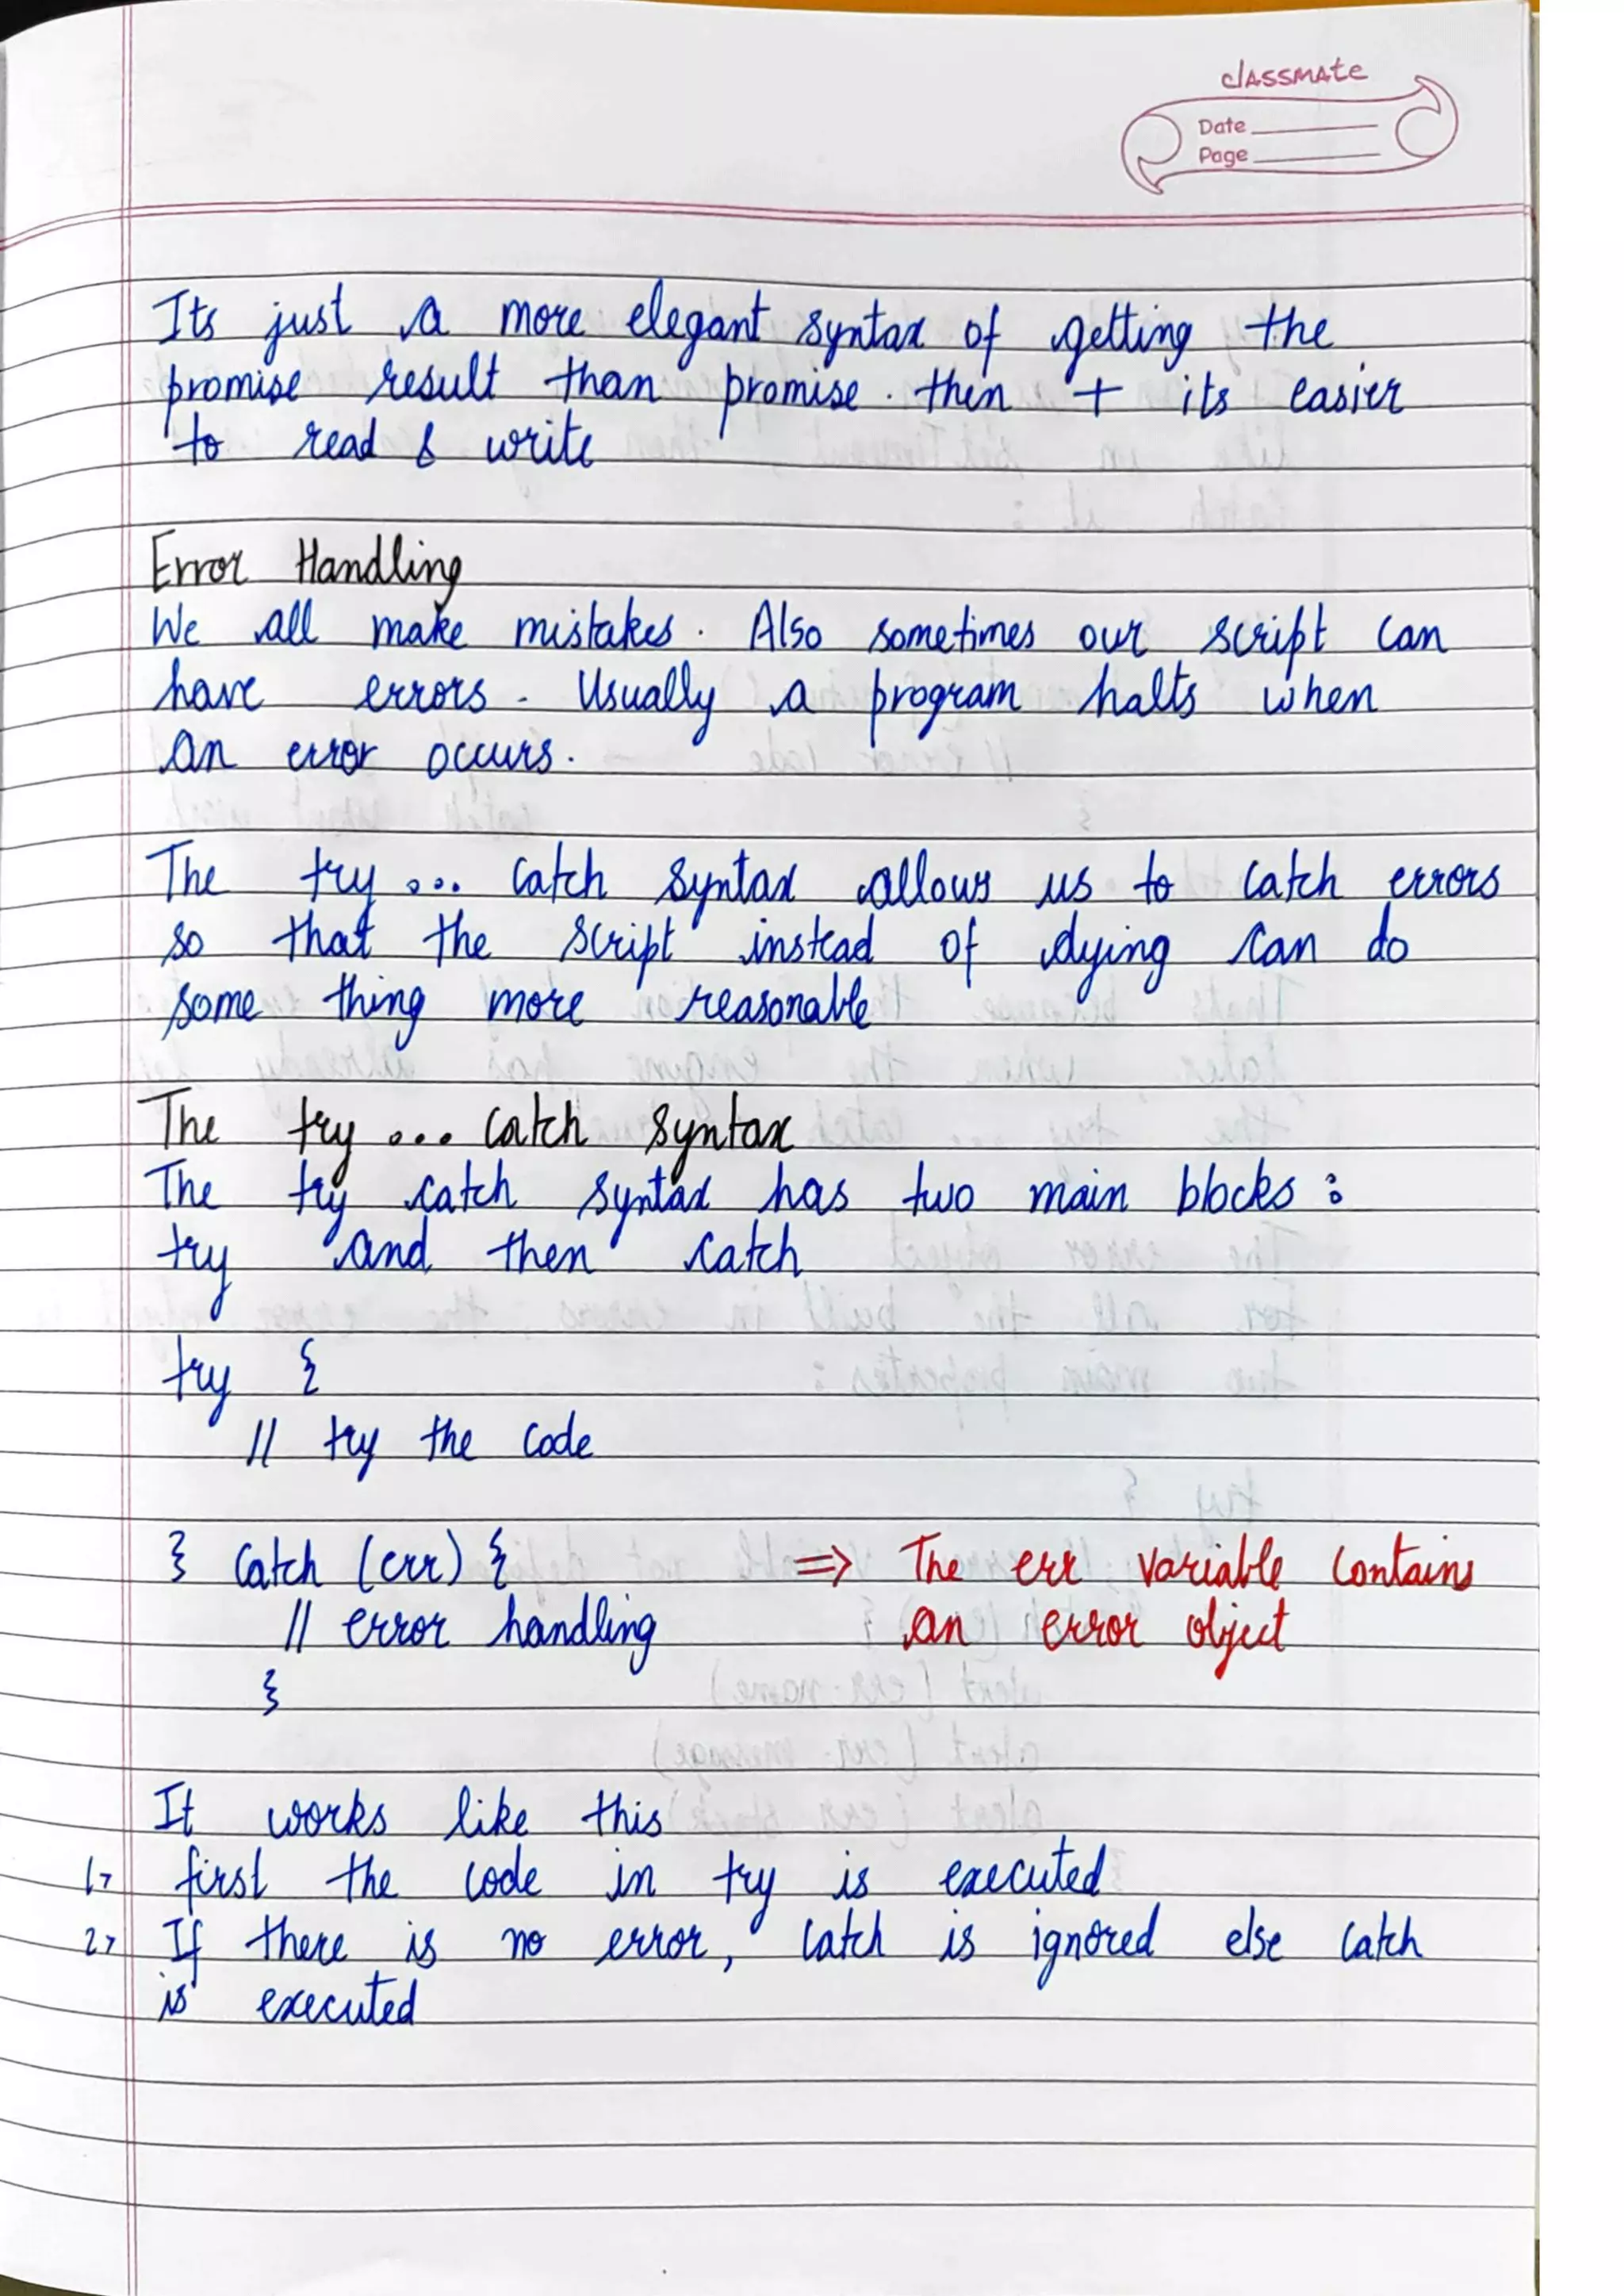 classmate
Date
Page
Its just a more elegant syntax of getting the
promise result than promise . then + its easier
to read & write
Error Handling
We all make mistakes. Also sometimes our script can
have errors. Usually a program halts when
an error occurs.
The try ... catch syntax allows us to catch errors
so that the script instead of dying can do
some thing more reasonable
The try ... catch syntax
The try catch syntax has two main blocks :
try and then catch
try {
// try the code
} catch (err) { => The err variable contains
// error handling an error object
}
It works like this
1> first the code in try is executed
2> If there is no error, catch is ignored else catch
is executed